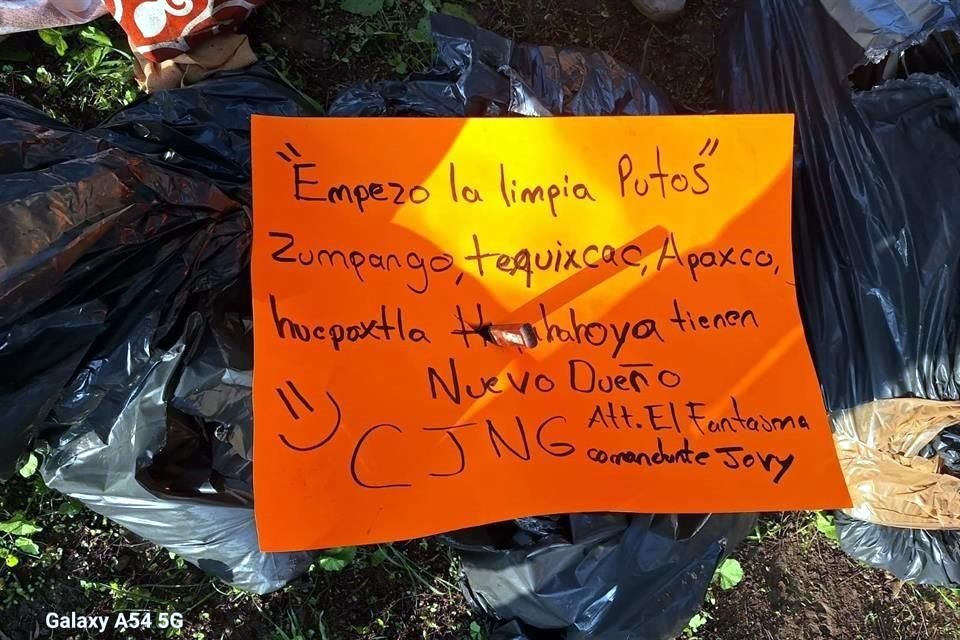 "Empezo la limpia Putos"
Zumpango, tequixcac, Apaxco,
huepoxtla tienen
Nuevo Dueño
CJNG Att. El Fantasma
comandante Jovy
Galaxy A54 5G